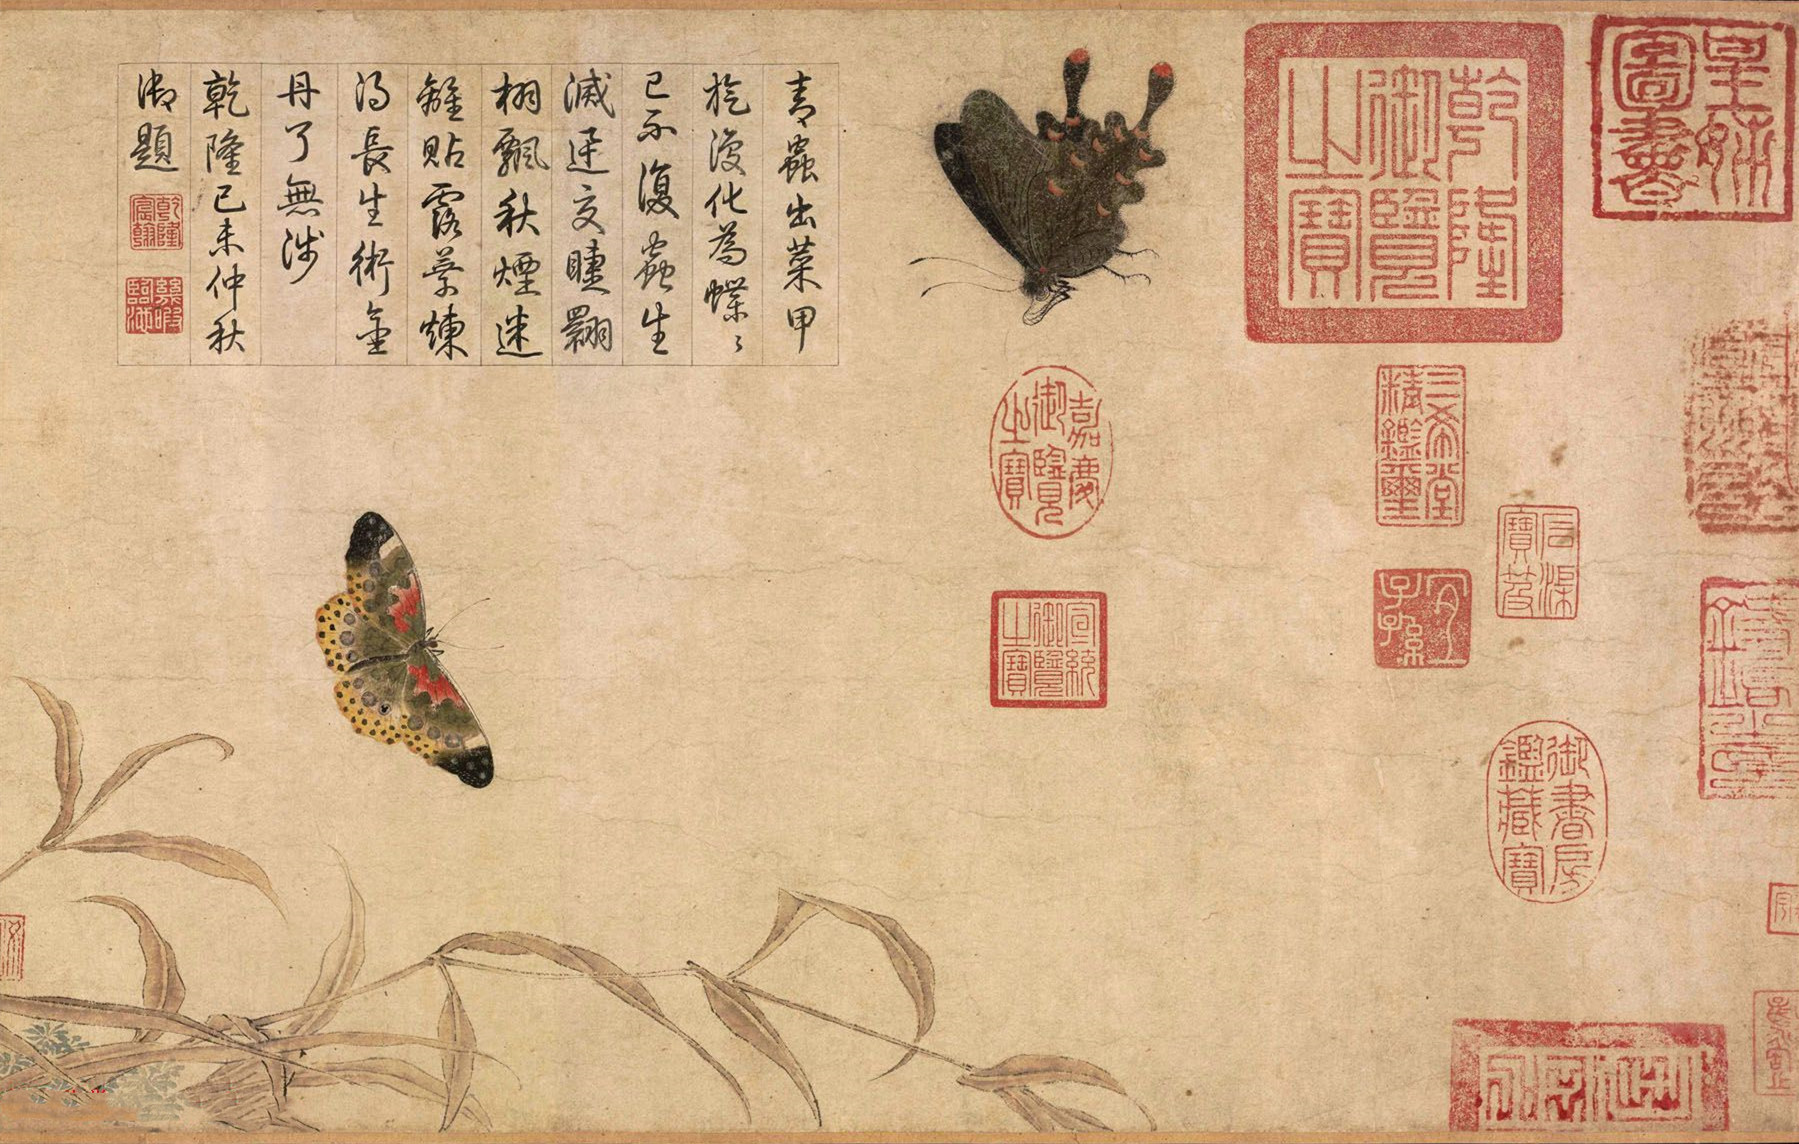 青蟲出菜甲
旋復化為蝶〻
已不復蟲生
滅交睫翾
栩飄秋煙迷
離貼露葉煉
得長生術金
丹了無涉
乾隆己未仲秋
御題
乾隆宸翰
幾暇臨池
皇姊圖書
乾隆御覽之寶
三希堂精鑑璽
石渠寶笈
宜子孫
御書房鑑藏寶
嘉慶御覽之寶
宣統御覽之寶